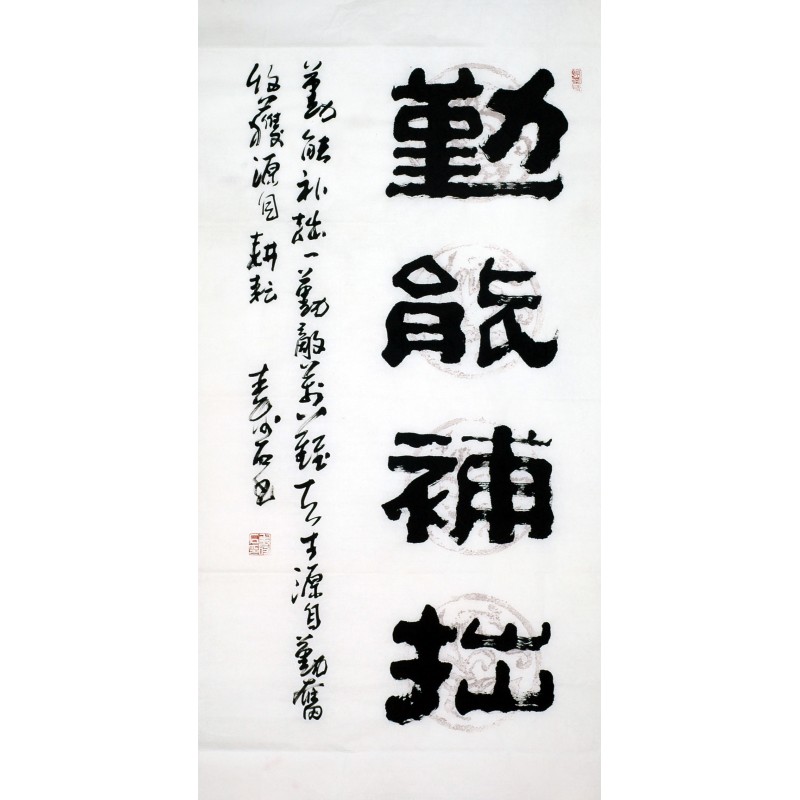 勤能補拙
勤能补拙一勤敵萬難天才源自勤奮
收獲源自耕耘